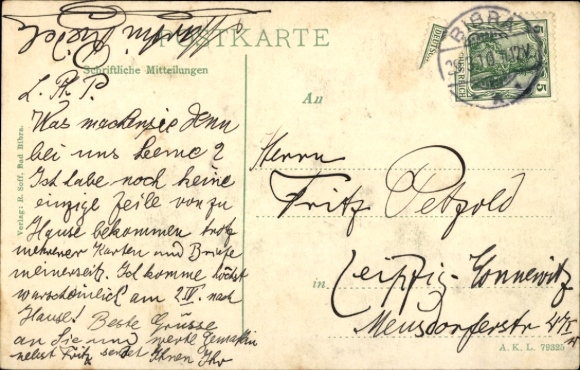 POSTKARTE
Schriftliche Mitteilungen
L. Fr. P.
Was machensie denn
bei uns heeme?
Ist habe noch keine
einzige Zeile von zu
Hause bekommen trotz
mehrerer Karten und Briefe
meinerseit. Ich komme höchst
warscheinlich am 2 IV. nach
Hause! Beste Grüsse
an Sie und werte Gemahlin
nebst Fritz sendet Ihnen Ihr
An
Herrn
Fritz Petzold
in Leipzig-Connewitz
Meusdorferstr 47 II
BIBRA
DEUTSCHES REICH
5 5
Verlag: R. Soff, Bad Bibra.
A. K. L. 79325